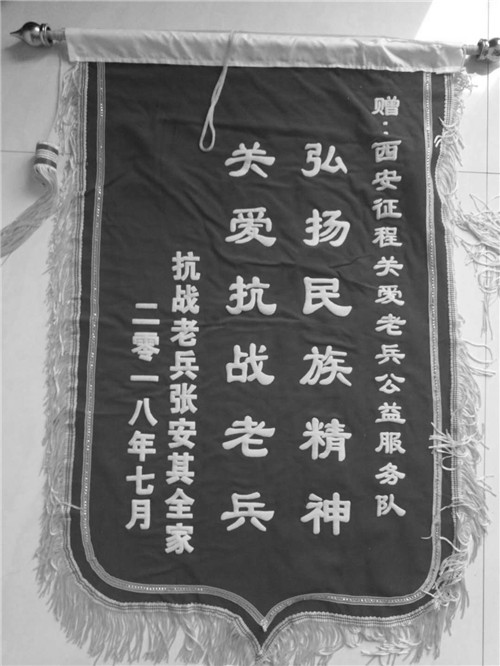 赠：西安征程关爱老兵公益服务队
弘扬民族精神
关爱抗战老兵
抗战老兵张安其全家
二零一八年七月